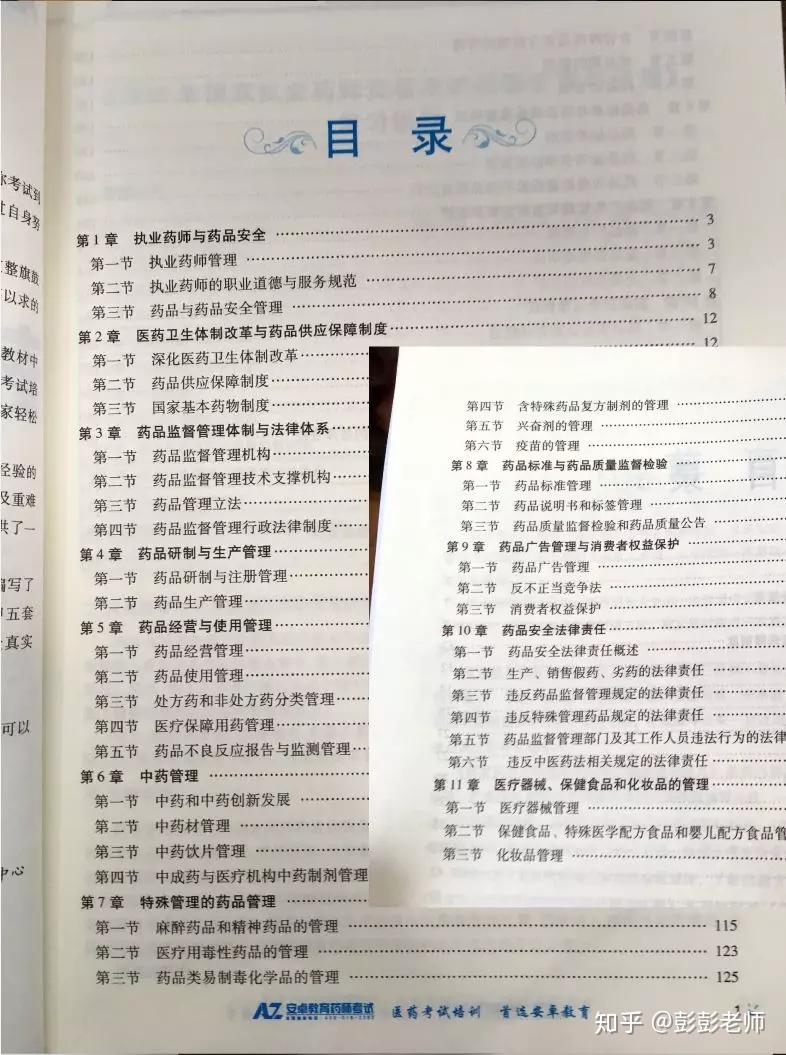 你考试到
过自身努
整旗鼓
以求的
教材中
考试培
家轻松
经验的
及重难
供了一
编写了
五套
真实
可以
中心
目 录
第1章 执业药师与药品安全 3
第一节 执业药师管理 3
第二节 执业药师的职业道德与服务规范 7
第三节 药品与药品安全管理 8
第2章 医药卫生体制改革与药品供应保障制度 12
第一节 深化医药卫生体制改革 12
第二节 药品供应保障制度
第三节 国家基本药物制度
第3章 药品监督管理体制与法律体系
第一节 药品监督管理机构
第二节 药品监督管理技术支撑机构
第三节 药品管理立法
第四节 药品监督管理行政法律制度
第4章 药品研制与生产管理
第一节 药品研制与注册管理
第二节 药品生产管理
第5章 药品经营与使用管理
第一节 药品经营管理
第二节 药品使用管理
第三节 处方药和非处方药分类管理
第四节 医疗保障用药管理
第五节 药品不良反应报告与监测管理
第6章 中药管理
第一节 中药和中药创新发展
第二节 中药材管理
第三节 中药饮片管理
第四节 中成药与医疗机构中药制剂管理
第7章 特殊管理的药品管理
第一节 麻醉药品和精神药品的管理 115
第二节 医疗用毒性药品的管理 123
第三节 药品类易制毒化学品的管理 125
第四节 含特殊药品复方制剂的管理
第五节 兴奋剂的管理
第六节 疫苗的管理
第8章 药品标准与药品质量监督检验
第一节 药品标准管理
第二节 药品说明书和标签管理
第三节 药品质量监督检验和药品质量公告
第9章 药品广告管理与消费者权益保护
第一节 药品广告管理
第二节 反不正当竞争法
第三节 消费者权益保护
第10章 药品安全法律责任
第一节 药品安全法律责任概述
第二节 生产、销售假药、劣药的法律责任
第三节 违反药品监督管理规定的法律责任
第四节 违反特殊管理药品规定的法律责任
第五节 药品监督管理部门及其工作人员违法行为的法律
第六节 违反中医药法相关规定的法律责任
第11章 医疗器械、保健食品和化妆品的管理
第一节 医疗器械管理
第二节 保健食品、特殊医学配方食品和婴儿配方食品管
第三节 化妆品管理
AZ 安卓教育药师考试 医药考试培训 首选安卓教育 1
知乎 @彭彭老师